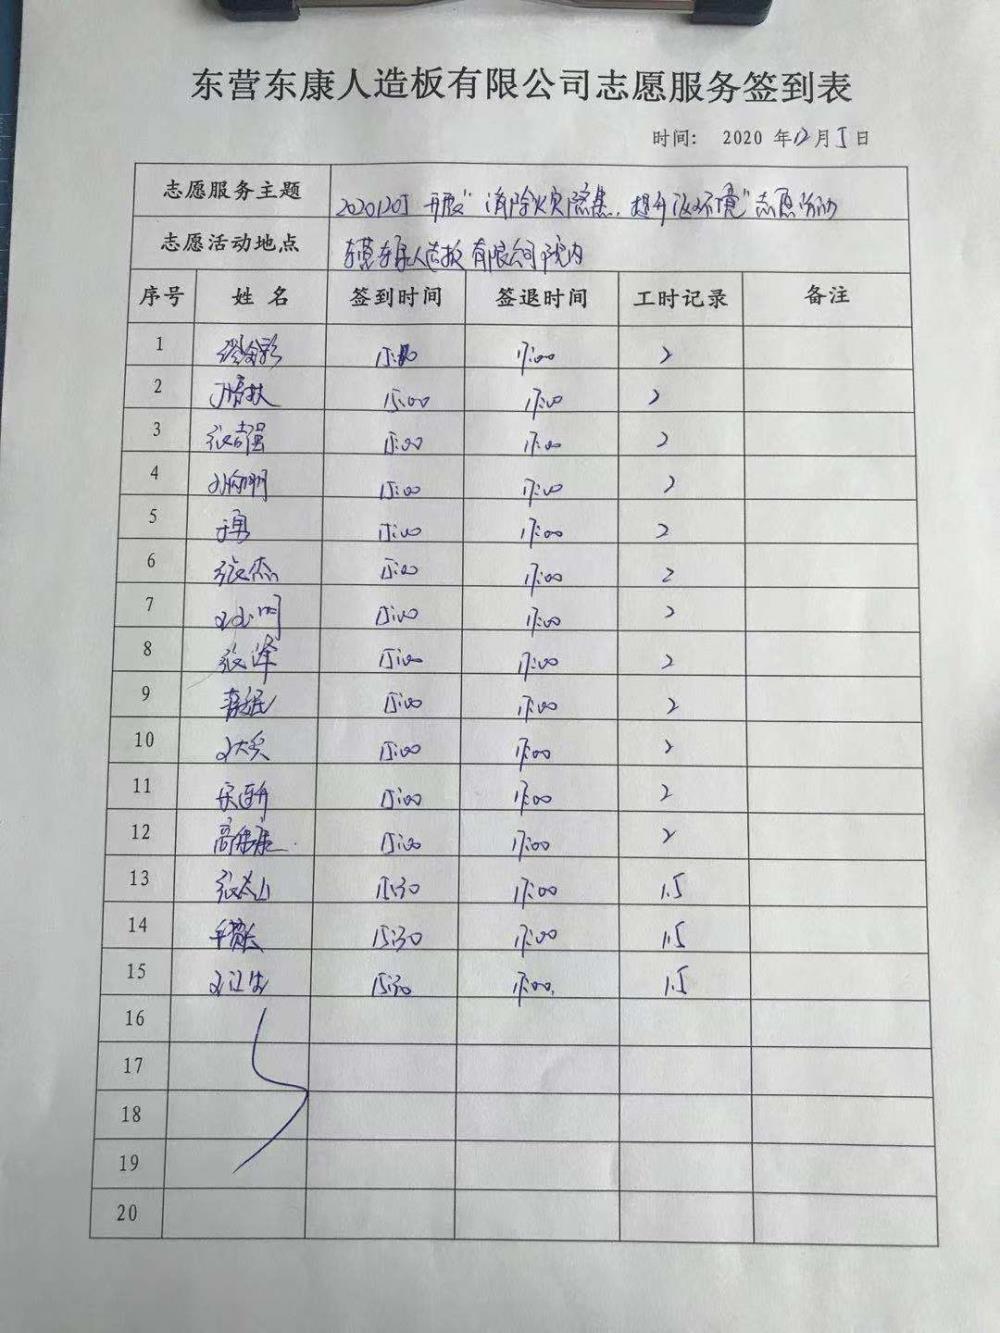 东营东康人造板有限公司志愿服务签到表
时间: 2020 年12月5日
志愿服务主题 20201205 开展"消除火灾隐患,提升环境"志愿活动
志愿活动地点 东营东康人造板有限公司院内
序号 姓名 签到时间 签退时间 工时记录 备注
1 15:00 17:00 2
2 15:00 17:00 2
3 张志强 15:00 17:00 2
4 15:00 17:00 2
5 于勇 15:00 17:00 2
6 张杰 15:00 17:00 2
7 15:00 17:00 2
8 张泽 15:00 17:00 2
9 15:00 17:00 2
10 15:00 17:00 2
11 15:00 17:00 2
12 15:00 17:00 2
13 15:30 17:00 1.5
14 15:30 17:00 1.5
15 15:30 17:00 1.5
16
17
18
19
20